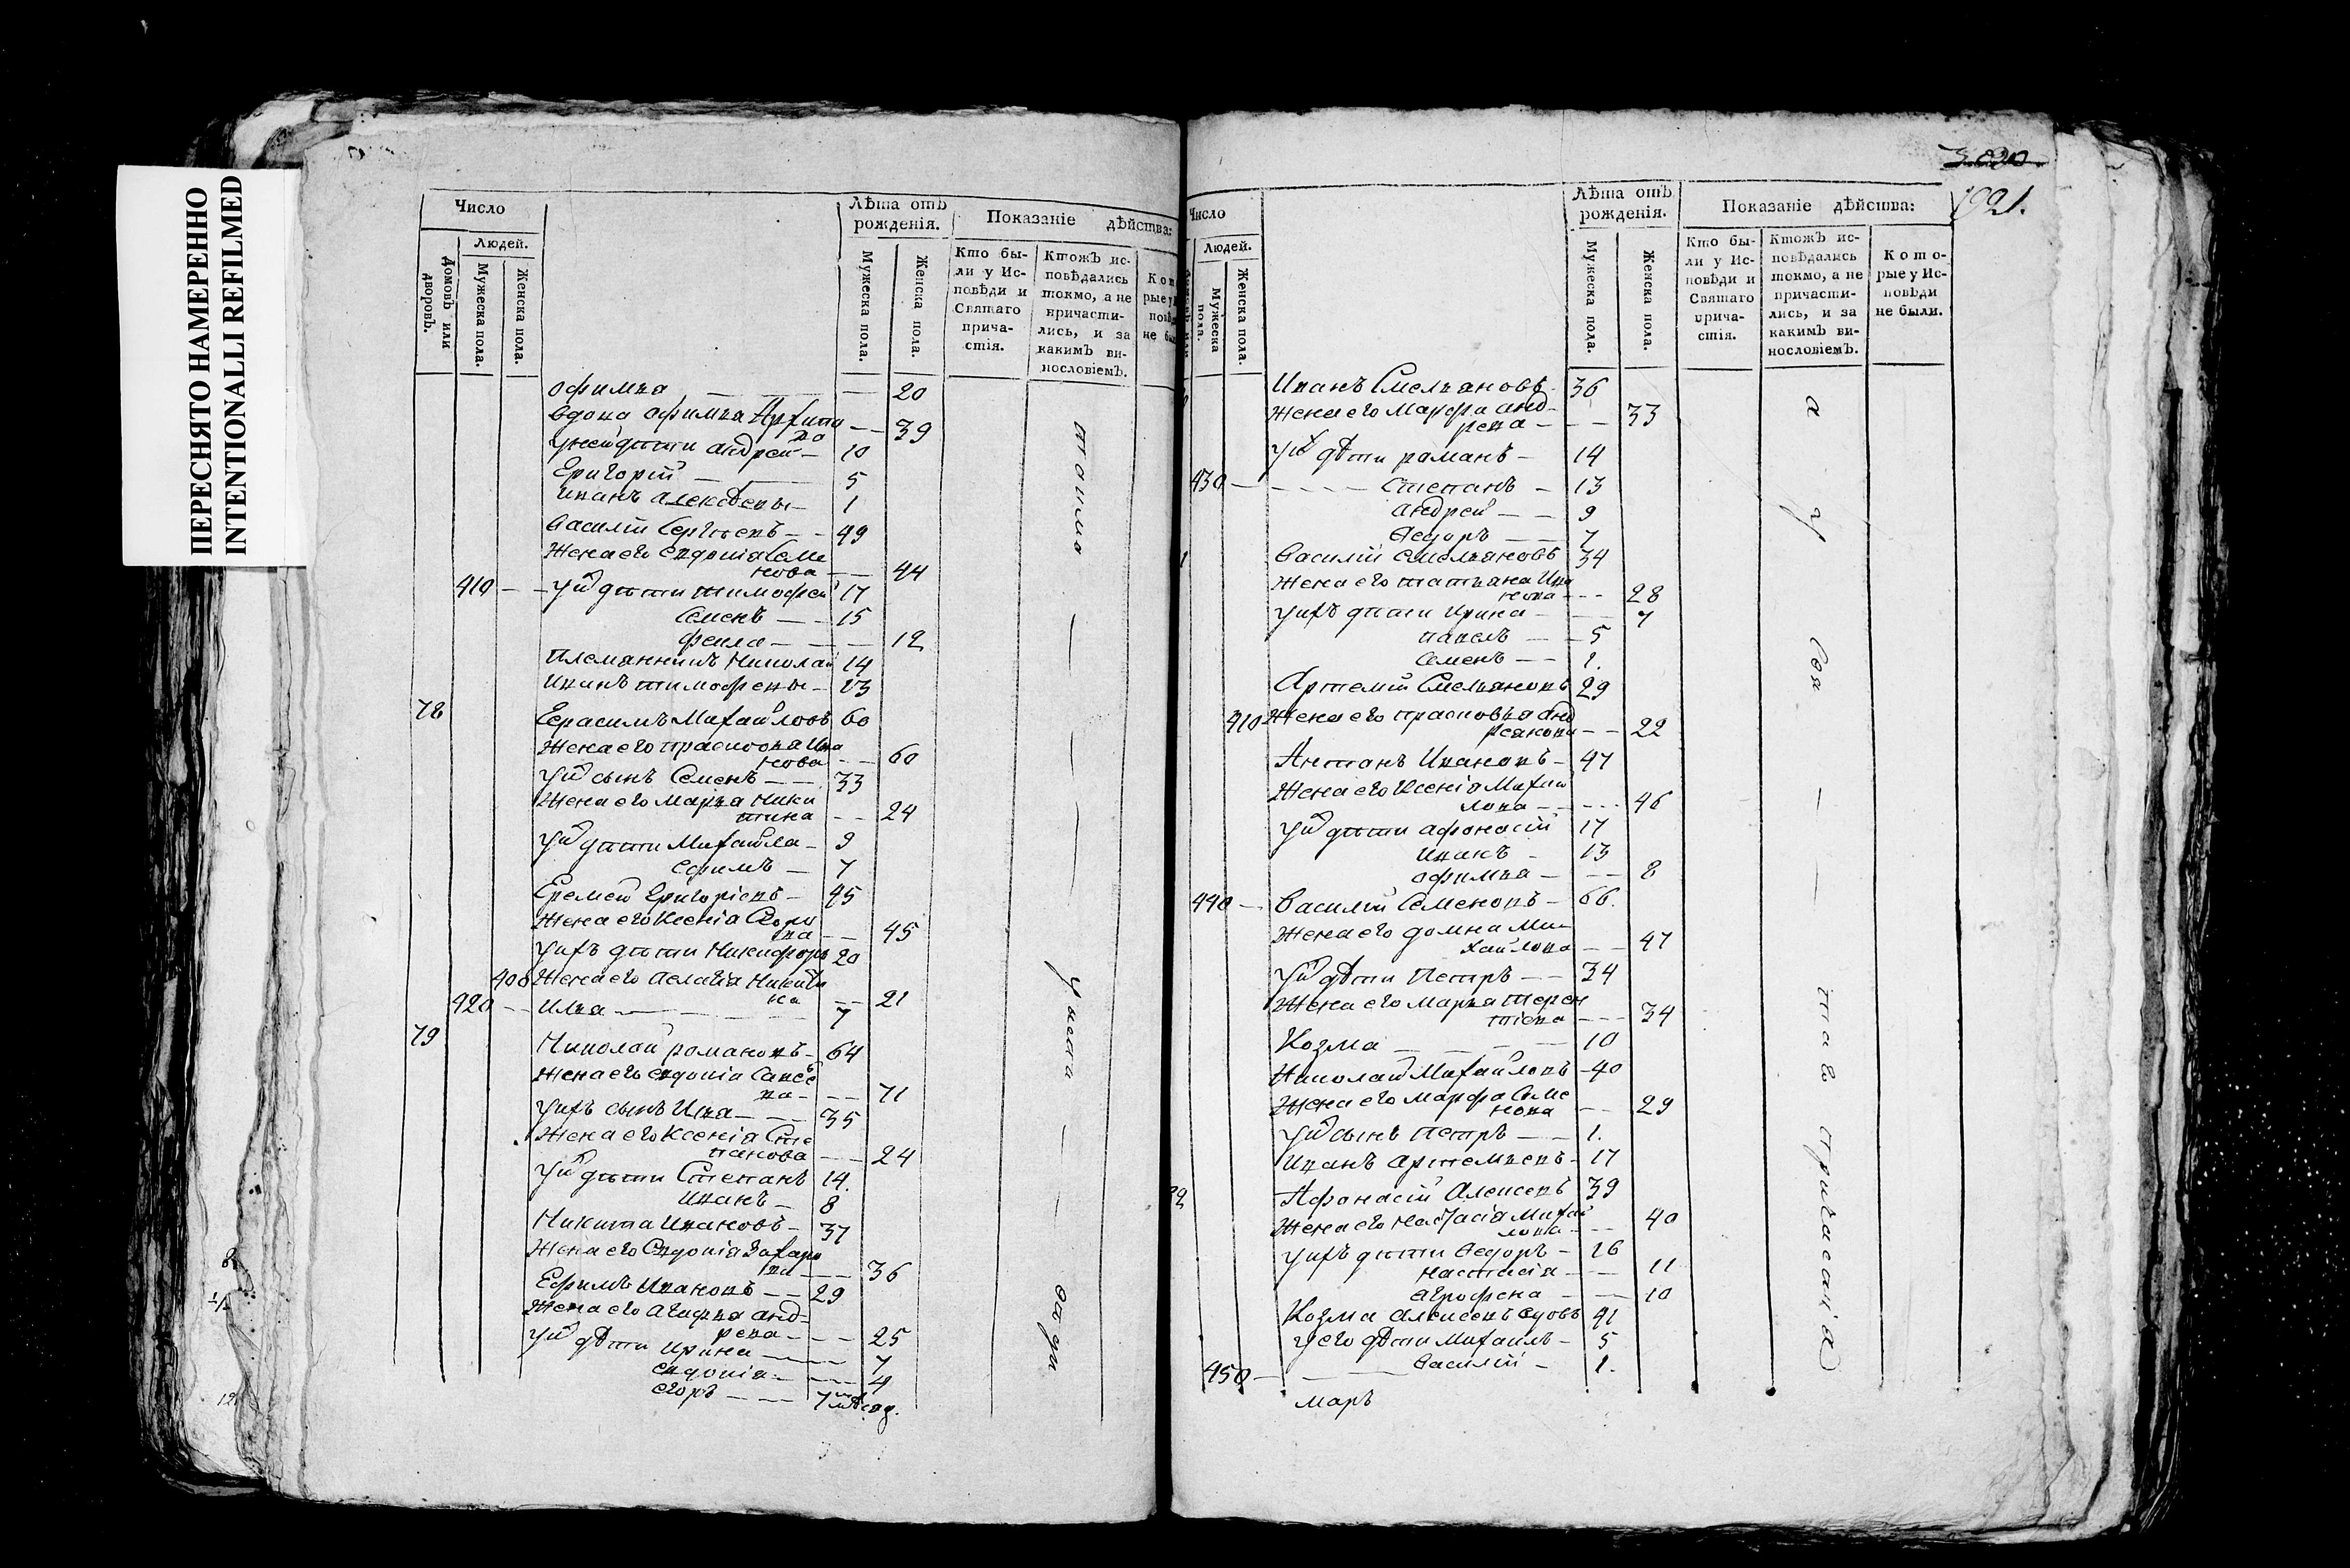 ПЕРЕСНЯТО НАМЕРЕННО
INTENTIONALLI REFILMED
Число
Людей.
Домовъ или дворовъ.
Мужеска пола.
Женска пола.
Лѣта отъ рожденія.
Мужеска пола.
Женска пола.
Показаніе дѣйства:
Кто были у Исповѣди и Святаго причастія.
Ктожъ исповѣдались токмо, а не причастились, и за какимъ винословіемъ.
офимья — 20
вдова офимья Архипо
ва — 39
унеи дѣти андреи — 10
Григорій — 5
Иванъ алексѣевы — 1
Василій Сергѣевъ — 49
Жена его евдокія Семе
нова — 44
410 — у нихъ дѣти тимофеи 17
Семенъ — 15
фекла — 12
племянники Николай 14
Иванъ тимофеевы — 13
78 Герасимъ Михайловъ 60
Жена его прасковья Ива
нова — 60
у нихъ сынъ Семенъ — 33
Жена его марья Ники
тина — 24
у нихъ дѣти Михайла — 9
ефимъ — 7
Еремей Григоріевъ — 45
Жена его Ксенія
45
у нихъ дѣти Никифоръ 20
408 Жена его Пелагія Никити
на — 21
420 — Илья — 7
79 Николай романовъ — 64
Жена его евдокія Савеѣ
ва — 71
у нихъ сынъ Ива — 35
Жена его Ксенія Сте
панова — 24
у нихъ дѣти Степанъ 14.
Иванъ — 8
Никита Ивановъ — 37
Жена его Евдокія Захаро
ва — 36
Ефимъ Ивановъ — 29
Жена его Агафья анд=
реева — 25
у нихъ дѣти Ирина — 7
евдокія — 4
егоръ — 7
таимо
—
—
—
у васи
—
—
321.
Число
Людей.
Мужеска пола.
Женска пола.
Лѣта отъ рожденія.
Мужеска пола.
Женска пола.
Показаніе дѣйства:
Кто были у Исповѣди и Святаго причастія.
Ктожъ исповѣдались токмо, а не причастились, и за какимъ винословіемъ.
Которые у Исповѣди не были.
Иванъ Емельяновъ 36
Жена его Марфа анд=
реева — 33
у нихъ дѣти романъ — 14
430 — Степанъ — 13
андрей — 9
Ѳедоръ — 7
Василій емельяновъ 34
Жена его татьяна Ива
нова — 28
у нихъ дѣти Ирина — 7
павелъ — 5
Семенъ — 1.
Артемій Емельяновъ 29
410 Жена его прасковья анд
реянова — 22
Антонъ Ивановъ — 47
Жена его Ксенія Михай
лова — 46
у нихъ дѣти афонасій 17
Иванъ — 13
офимья — 8
440 — Василій Семеновъ — 66.
Жена его домна Ми=
хайлова — 47
у нихъ дѣти Петръ — 34
Жена его Марья терен
тіева — 34
Козма — 10
Николай Михайловъ — 40
Жена его марфа Семе
нова — 29
у нихъ сынъ Петръ — 1.
Иванъ артемьевъ — 17
Афонасій Алексеевъ 39
Жена его настасія Михай
лова — 40
у нихъ дѣти Ѳедоръ — 16
настасія — 11
агрофена — 10
Козма алексеевъ вдовъ 41
у его дѣти Михаилъ — 5
450 — Василій — 1.
марь